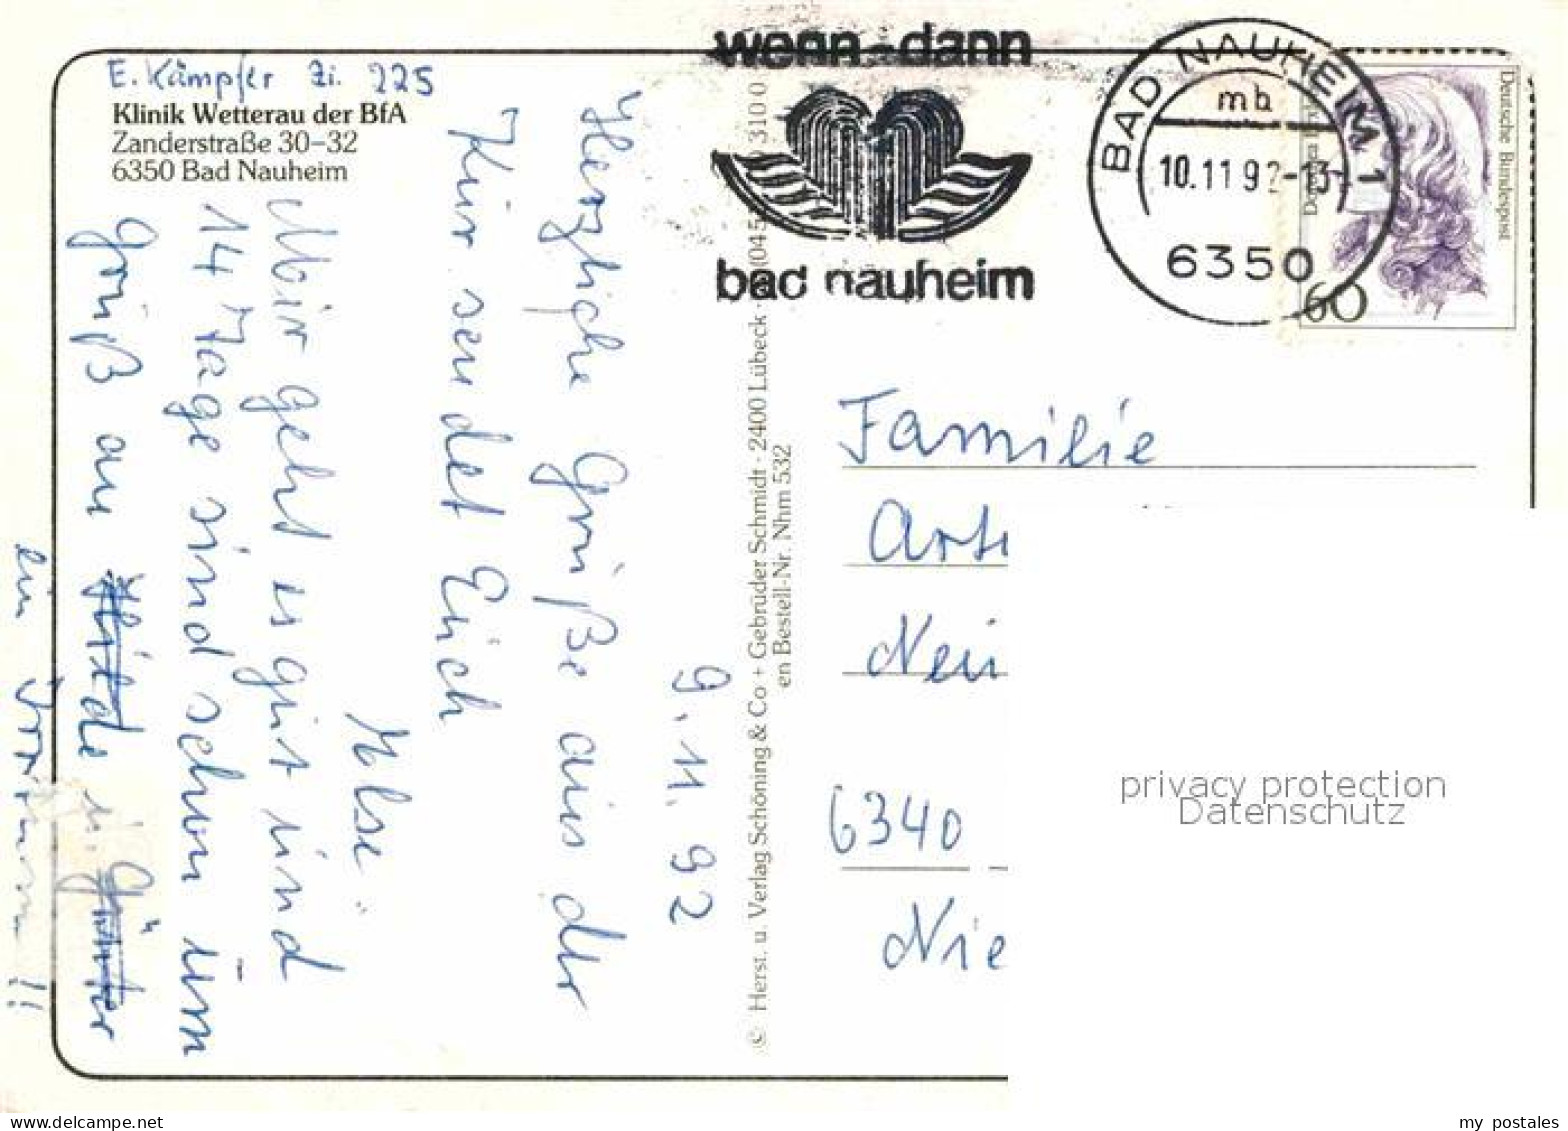 E. Kämpfer Zi. 225
Klinik Wetterau der BfA
Zanderstraße 30–32
6350 Bad Nauheim
9.11.92
Herzliche Grüße aus der
Kur sendet Erich
Mir geht es gut und
14 Tage sind schon um
Gruß an Hilde u. Günter
ein Irrtum!!
© Herst. u. Verlag Schöning & Co + Gebrüder Schmidt · 2400 Lübeck ·
en Bestell-Nr. Nhm 532
wenn-dann
bad nauheim
BAD NAUHEIM 1
mb
10.11.92-15
6350
Deutsche Bundespost
60
Familie
Neu
6340
Nie
privacy protection
Datenschutz
my postales